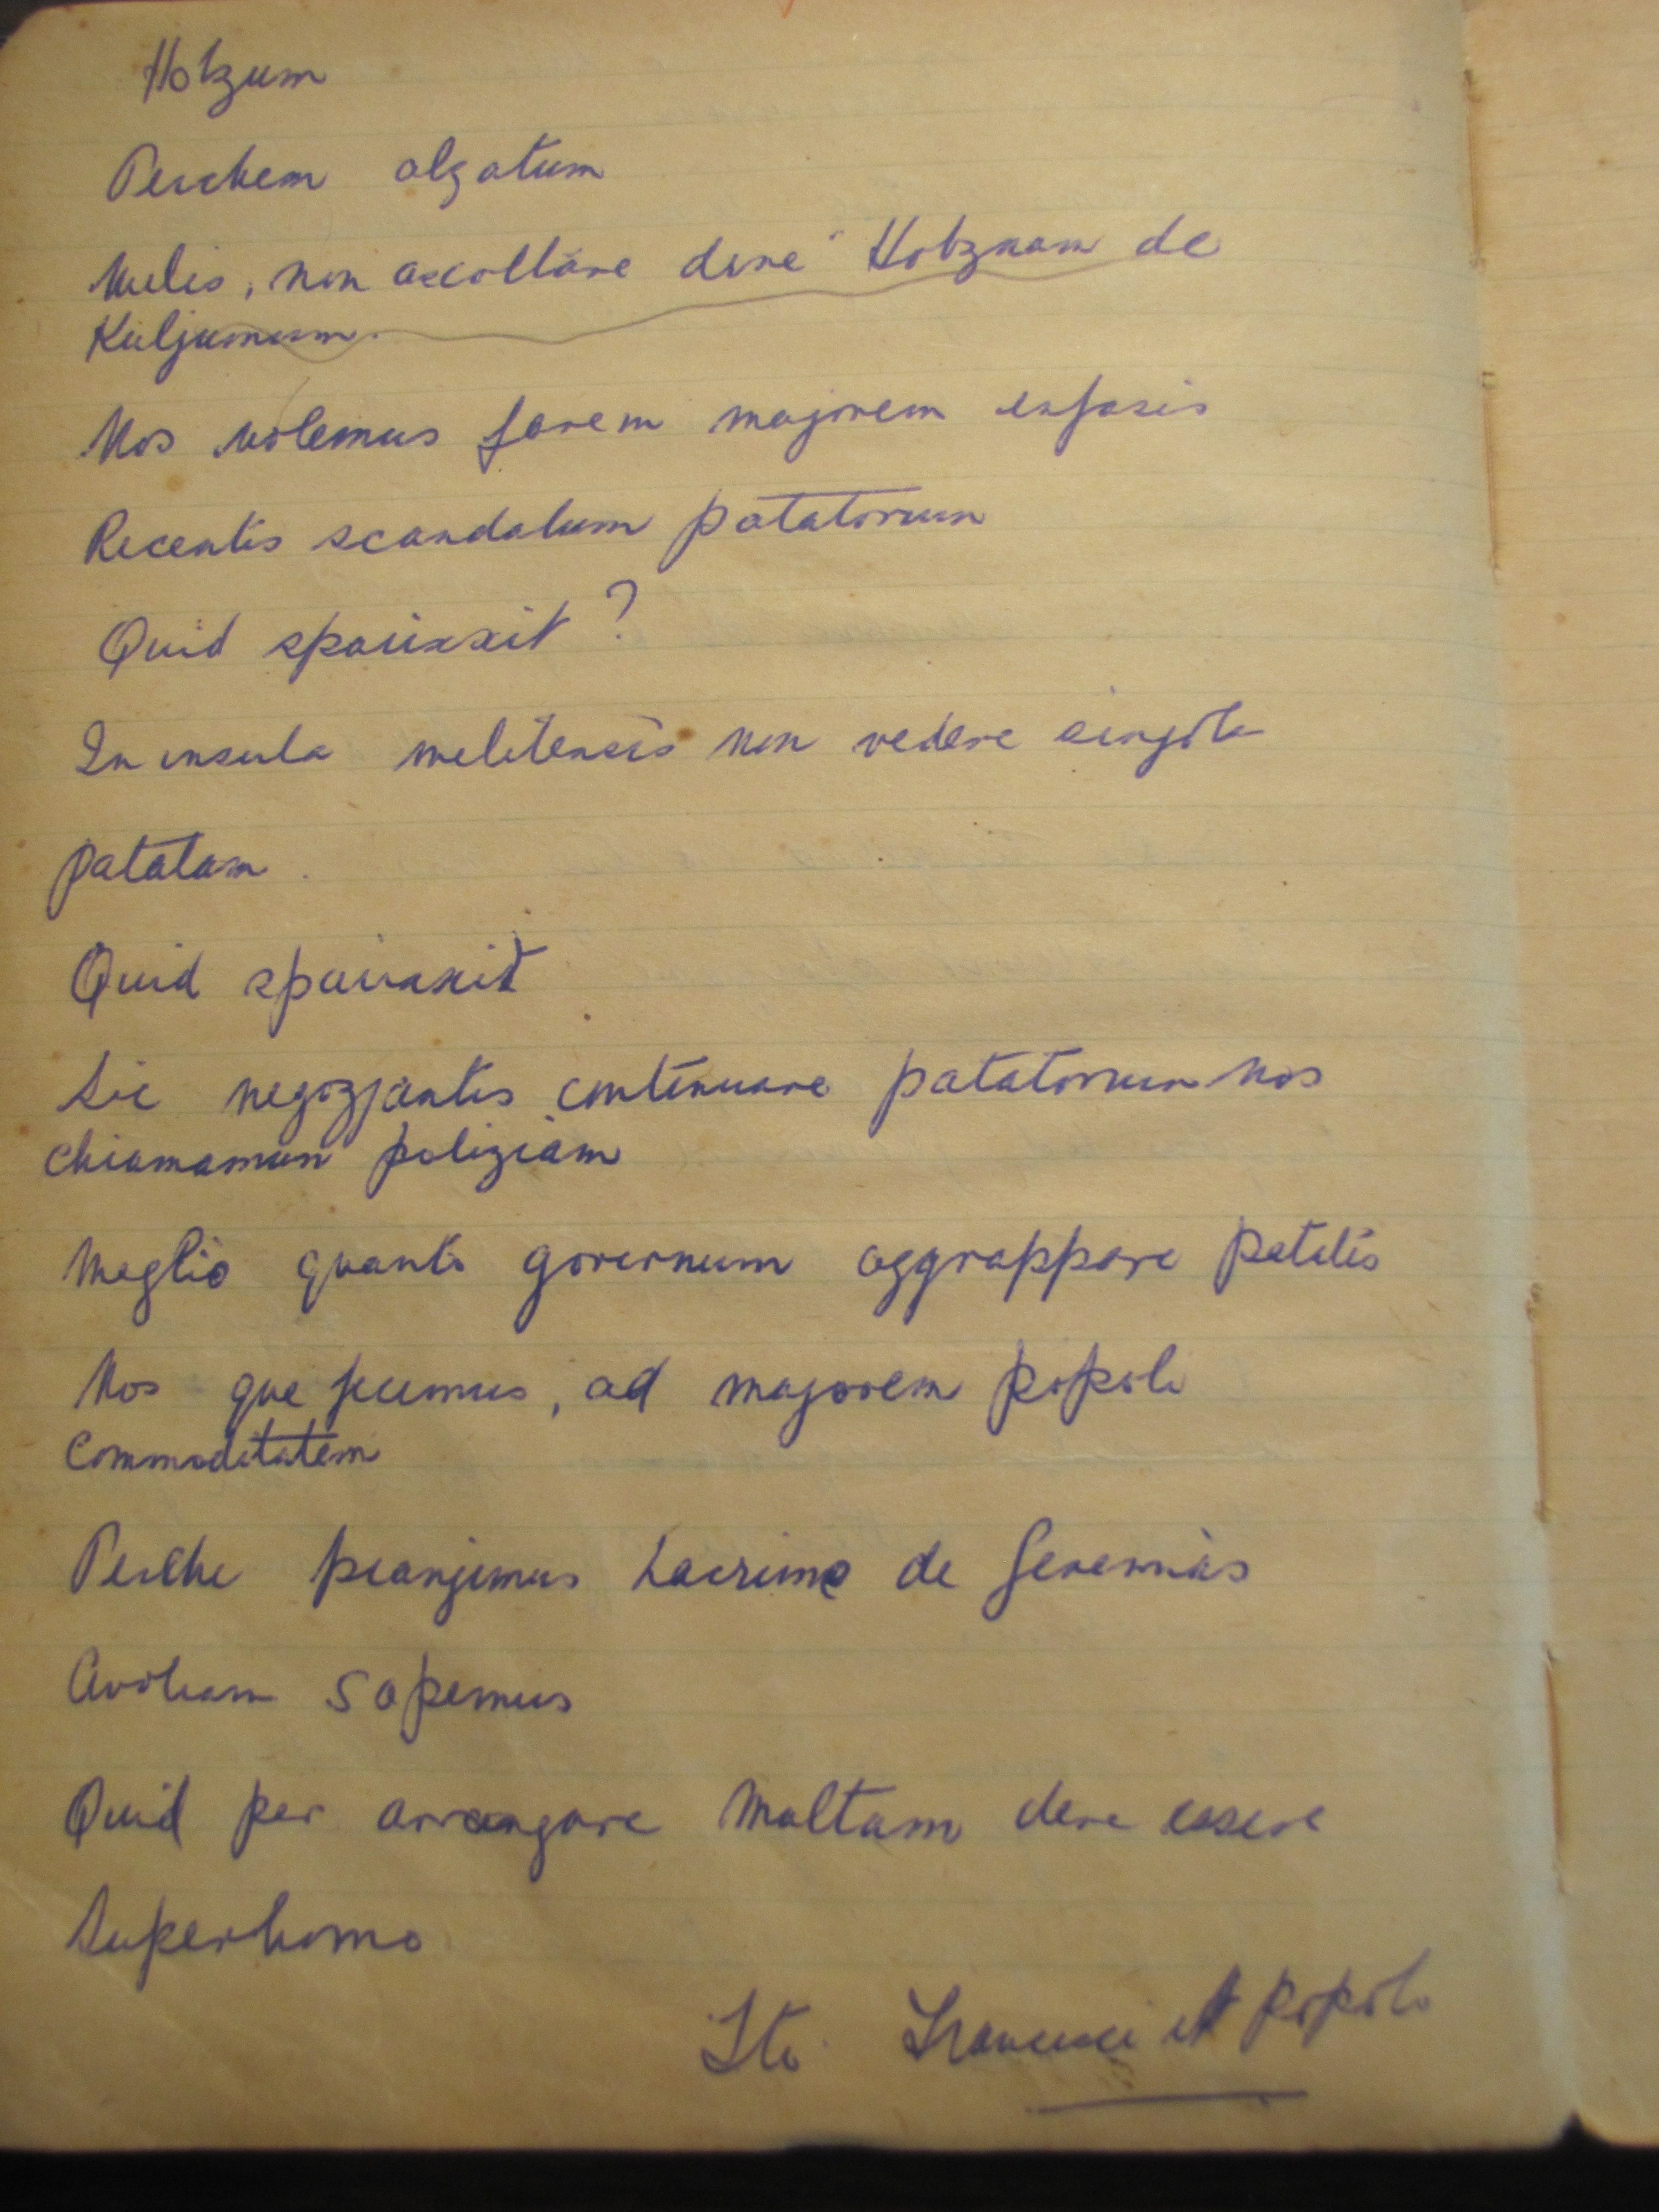 Hobzum
Perchem alzatum
Nulis, non ascoltare dire Hobznam de
Kuljumum.
Nos volemus farem majorem enfasis
Recentis scandalum patatorum
Quid sparixxit?
In insula melitensis non vedere singola
patatam.
Quid sparixxit
Sic negozjantis continuare patatorum nos
chiamamun poliziam
Meglio quanto governum aggrappare patatis
Nos que fecimus, ad majorem popolo
Commoditatem
Perche pianjemus Lacrime de Geremias
Avoliam sapemus
Quid per arrangare Maltam deve essere
Superhomo
Ito Francisci et popolo